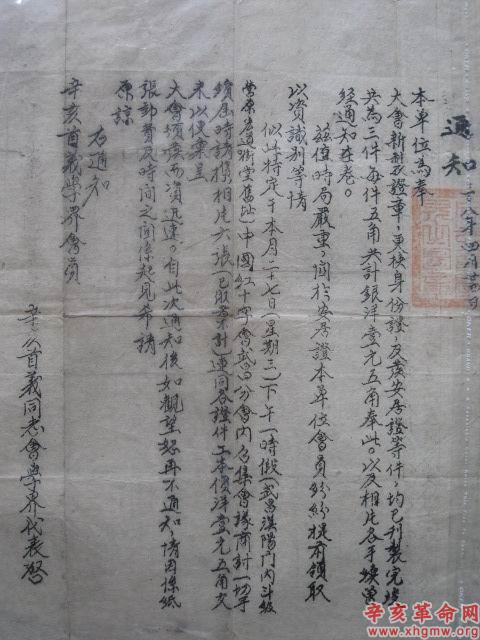 通知
本單位為奉
大會新制證章，更換身份證，及發安居證等件，均已刊製完竣
共為三件每件五角共計銀洋壹元五角奉此。以及相片各手續曾
經通知在卷。
茲值時局嚴重，關於安居證本單位會員紛紛提前領取
以資識別等情
似此特定于本月二十七日（星期三）下午一時假（武昌漢陽門內斗級
營原居道街堂舊址）中國紅十字會武昌分會內召集會議商討一切手
續屆時請攜相片六張（已繳者不計）連同各證件工本價洋壹元五角交
來以便彙呈
大會頒發而資迅速。自此次通知後如觀望恕再不通知情因係紙
張郵費及時間之關係起見希請
原諒
右通知
辛亥首義學界會員
辛亥首義同志會學界代表啓
辛亥革命网
www.xhgmw.org